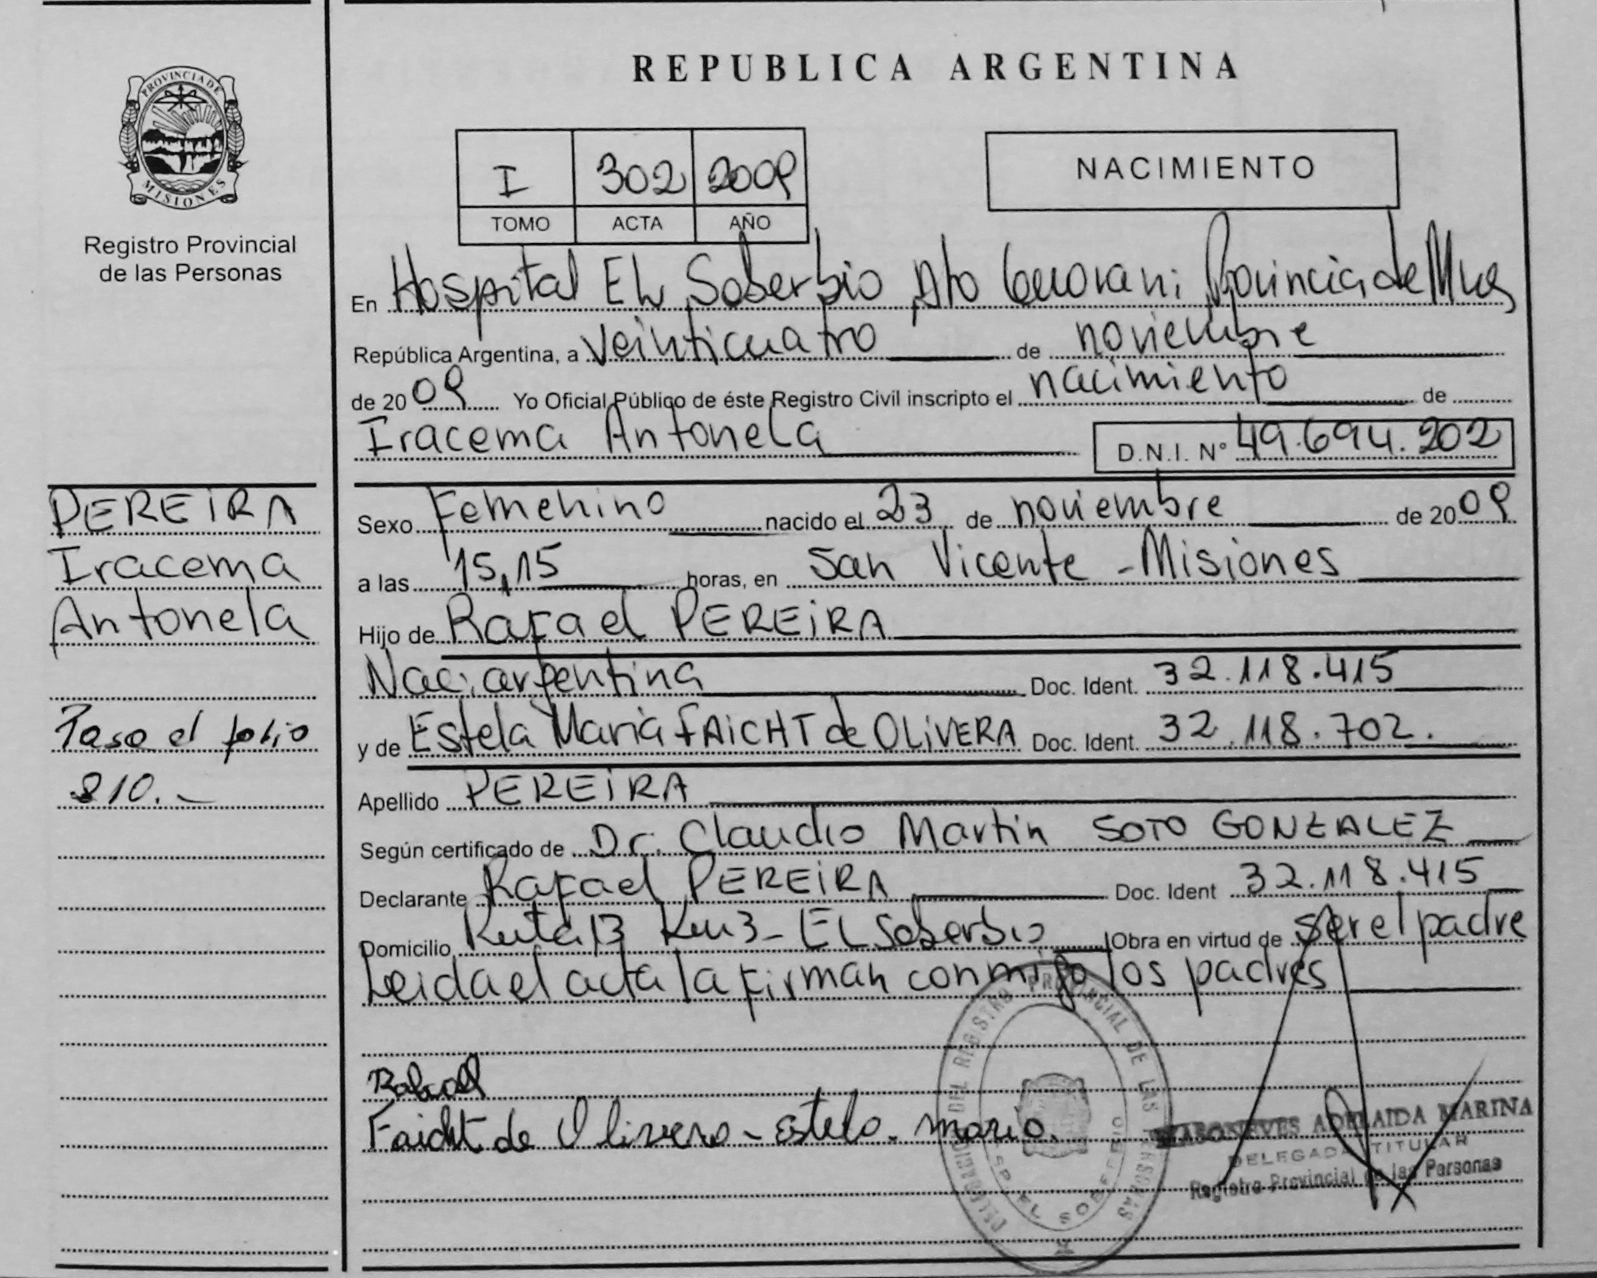 REPUBLICA ARGENTINA
PROVINCIA DE
MISIONES
Registro Provincial
de las Personas
I 302 2009
TOMO ACTA AÑO
NACIMIENTO
En Hospital EL Soberbio Dto Guarani Provincia de Mnes
República Argentina, a veinticuatro de noviembre
de 2009 Yo Oficial Público de éste Registro Civil inscripto el nacimiento de
Iracema Antonela D.N.I. Nº 49.694.202
PEREIRA
Iracema
Antonela
Paso el folio
810.-
Sexo Femenino nacido el 23 de noviembre de 2009
a las 15,15 horas, en San Vicente - Misiones
Hijo de Rafael PEREIRA
Nac: argentina Doc. Ident. 32.118.415
y de Estela Maria FAICHT de OLIVERA Doc. Ident. 32.118.702.
Apellido PEREIRA
Según certificado de Dr. Claudio Martin SOTO GONZALEZ
Declarante Rafael PEREIRA Doc. Ident 32.118.415
Domicilio Ruta 13 Km 3 - EL Soberbio Obra en virtud de ser el padre
Leida el acta la firman conmigo los padres
Faicht de Olivera - Estela. maria.
DELEGACION DEL REGISTRO PROVINCIAL DE LAS PERSONAS
EL SOBERBIO
ADELAIDA MARINA
DELEGADA TITULAR
Registro Provincial de las Personas